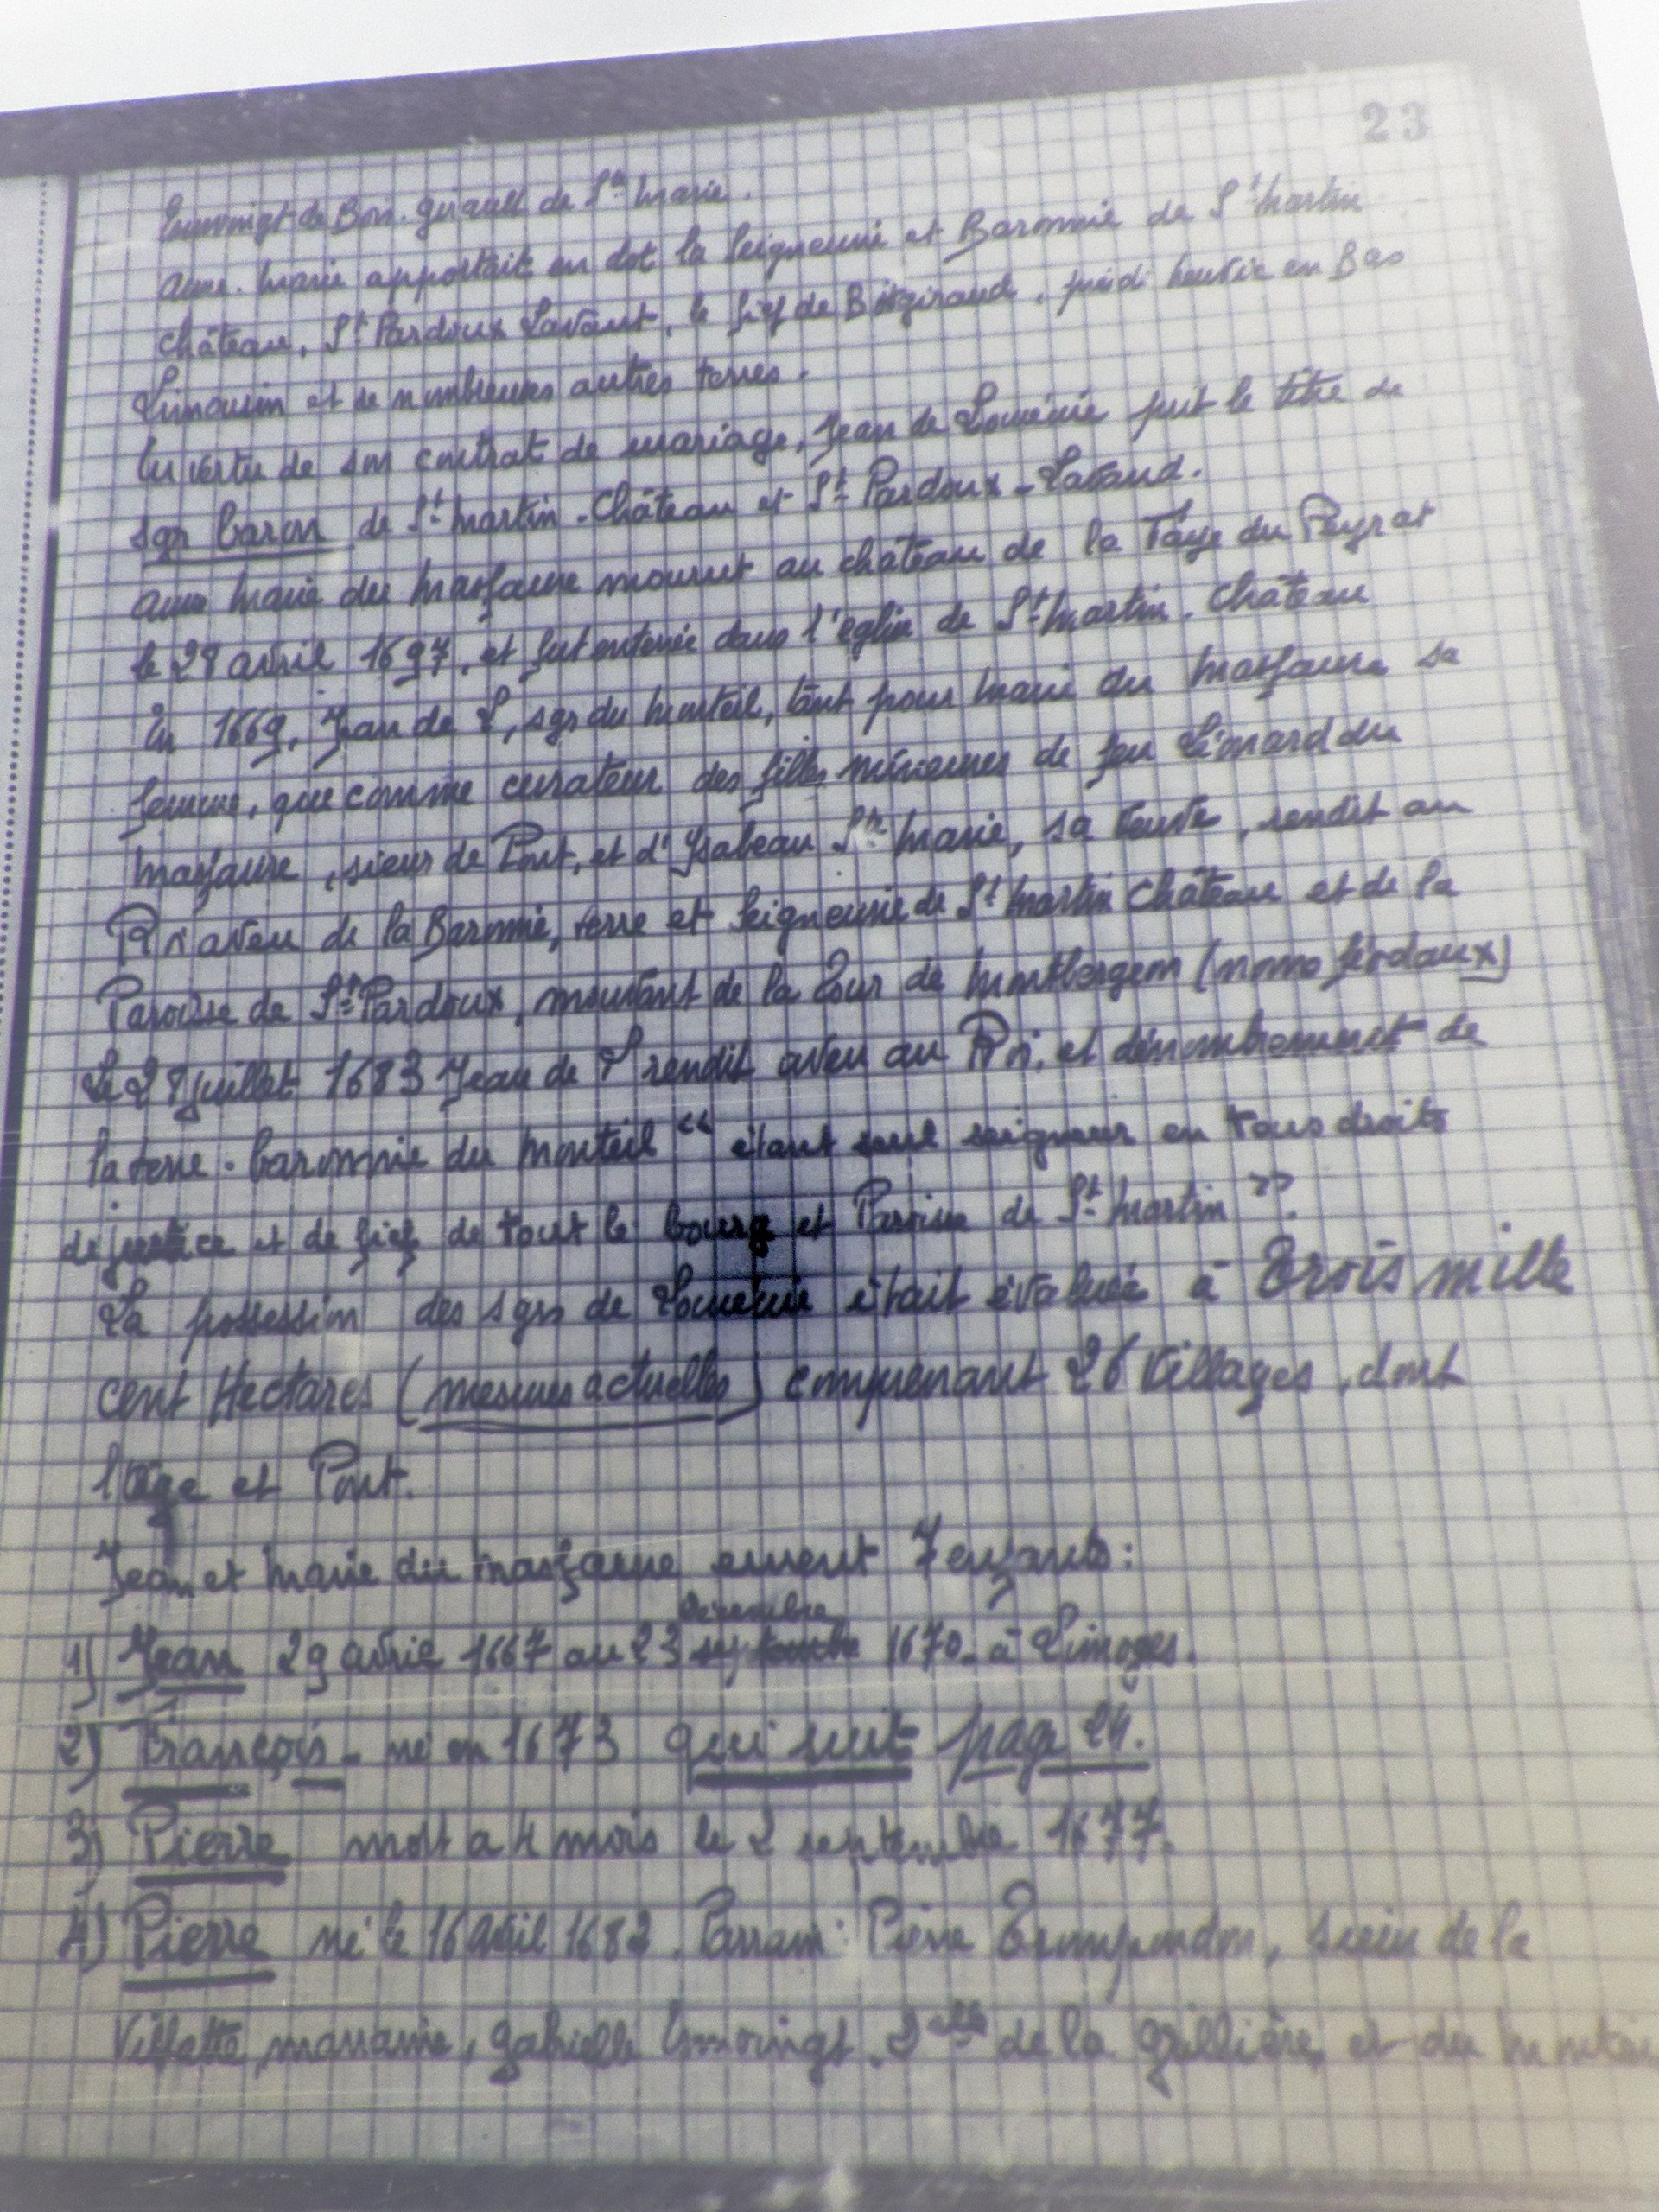 23
de Bois. Girault de Ste Marie.
Anne. Marie apportait en dot la Seigneurie et Baronnie de St Martin
Château, St Pardoux Lavaut, le fief de Boisgiraud, en Bas
Limousin et de nombreuses autres terres.
En vertu de son contrat de mariage, Jean de Loménie prit le titre de
sgr baron de St Martin-Château et St Pardoux-Lavaud.
Anne Marie du Masfaure mourut au château de la Faye du Peyrat
le 28 avril 1697, et fut enterrée dans l'église de St Martin. Château
En 1669, Jean de L, sgr du Monteil, tant pour Marie du Masfaure sa
femme, que comme curateur des filles mineures de feu Léonard du
Masfaure, sieur de Pont, et d'Ysabeau Ste Marie, sa veuve, rendit au
Roi aveu de la Baronnie, terre et Seigneurie de St Martin Château et de la
Paroisse de St Pardoux, mouvant de la Tour de (noms féodaux)
Le 28 juillet 1683 Jean de L rendit aveu au Roi, et dénombrement de
la terre-baronnie du Monteil "étant seul seigneur en tous droits
de justice et de fief de tout le bourg et Paroisse de St Martin".
La possession des sgrs de Loménie était évaluée à Trois mille
cent Hectares (mesures actuelles) comprenant 26 Villages, dont
l'âge et Pont.
Jean et Marie du Masfaure eurent 7 enfants:
décembre
1) Jean 29 avril 1667 au 23 septembre 1670. à Limoges.
2) François - né en 1673 qui suit page 24.
3) Pierre mort a 4 mois le 2 septembre 1677.
4) Pierre né le 16 avril 1682. Parrain: Pierre sieur de la
Villatte, marraine, Gabrielle Esmoingt. Delle de la Grillière, et du